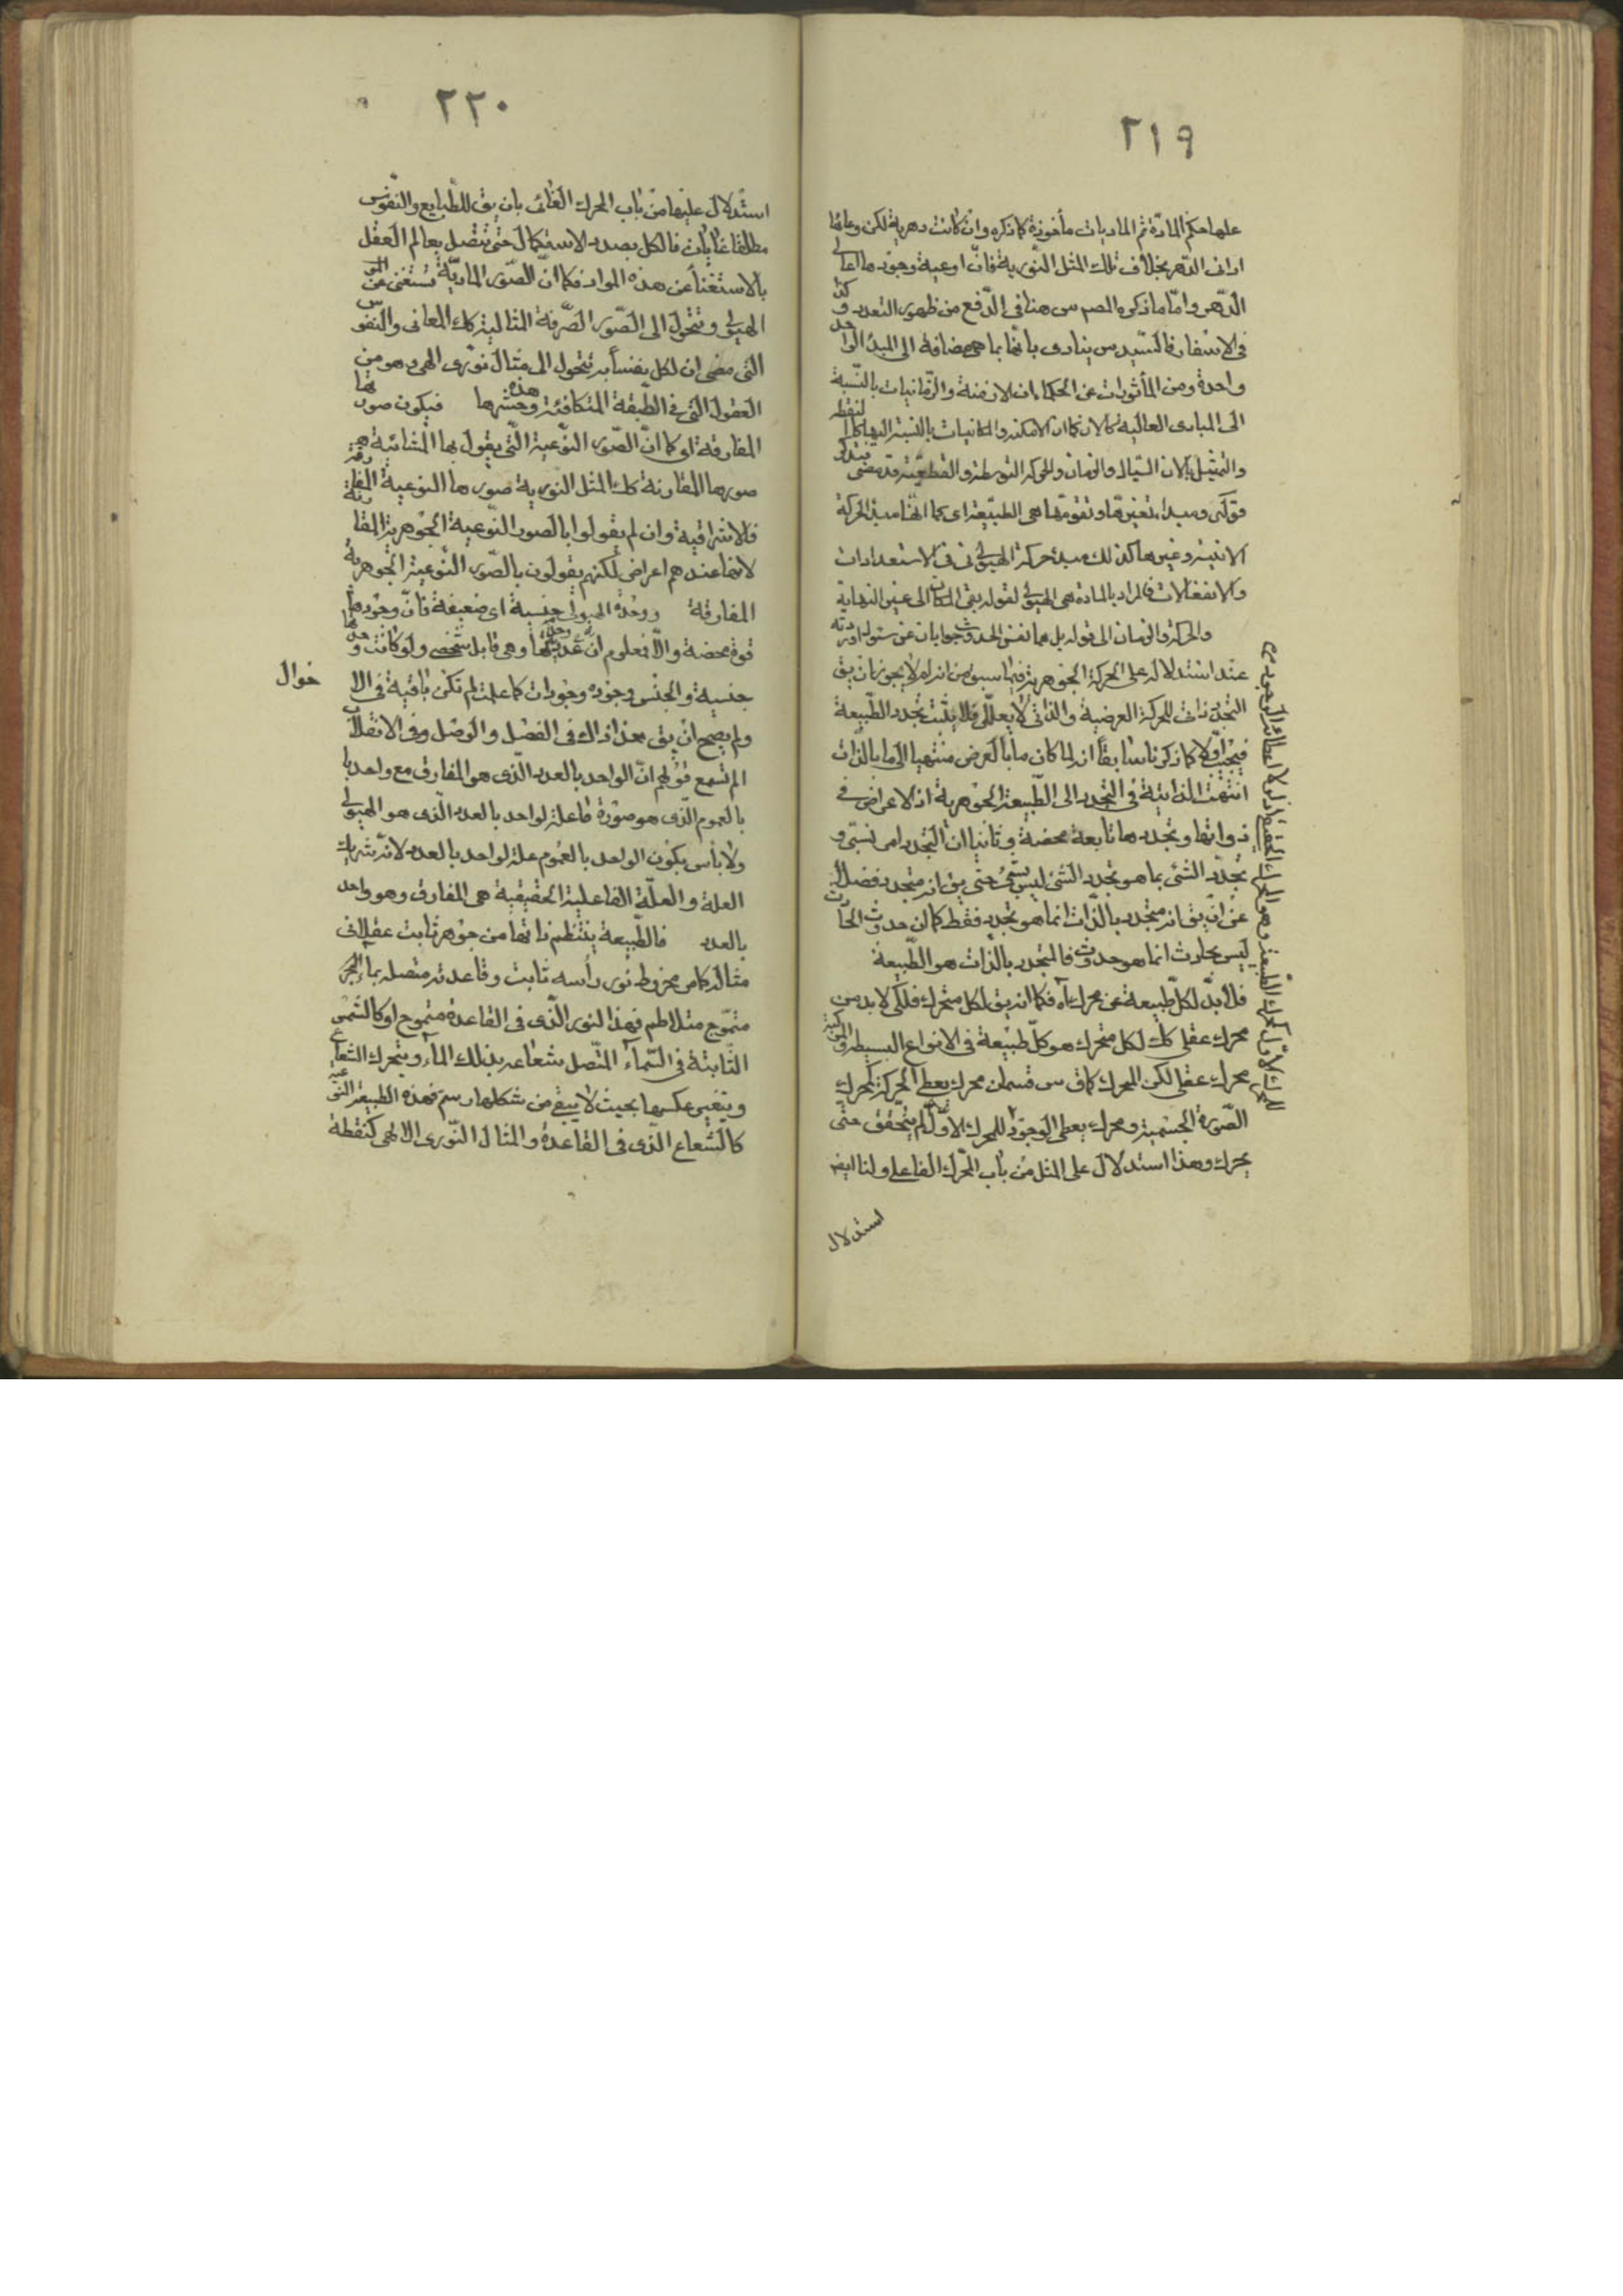 ٢١٩
عليها حكم المادّة ثم الماديات مأخوذة كما ذكره وان كانت دهرية لكن وعائها
ادانى الدّهر بخلاف تلك المثل النّورية فانّ اوعية وجودها اعالى
الدّهر وامّا ما ذكره المصـ س هنا فى الدّفع من ظهور التعدد وكذا
فى الاسفار فالسّيد س ينادى بانّها بما هى مضافة الى المبدء الواحد
واحدة ومن المأثورات عن الحكماء ان الازمنة والزّمانيات بالنّسبة
الى المبادى العالية كالان كما ان الامكنة والمكانيات بالنسبة اليها كالنقطة
والتمثيل بالان السّيال والزمان والحركة التوسطية والقطعيّة قد مضى فتذكر
قوله س ومبدء تغيرها وتقومها هى الطبيعة اى كما انّها مبدء الحركة
الاينية وغيرها كذلك مبدء حركة الهيولى فى الاستعدادات
والانفعالات فالمراد بالمادة هى الهيولى لقوله بقى المكان الى غير النهاية
والحركة والزمان الى قوله بل هما نفس الحدوث جوابان عن سئوال اورده
عند استدلاله على الحركة الجوهرية فيما سبق من انه لم لا يجوز ان يق
التجدّد ذاتى للحركة العرضية والذاتى لا يعلل فلا يثبت تجدد الطّبيعة
فيجاب اوّلا كما ذكرنا سابقاً انه لما كان ما بالعرض منتهيا الى ما بالذّات
انتهت الذاتية فى التجدد الى الطّبيعة الجوهرية اذ الاعراض فى
ذواتها وتجددها تابعة محضة وثانيا ان التجدد امر نسبى و
تجدّد الشئ بما هو تجدد الشئ ليس بشئ حتى يق انه متجدد فضلا
عن ان يق انه متجدد بالذّات انما هو تجدد فقط كما ان حدوث الحادث
ليس بحادث انما هو حدوث فالمتجدد بالذات هو الطّبيعة
فلا بدّ لكلّ طبيعة من محرك آه فكما انه يق لكل متحرك فلكى لا بد من
محرك عقلى كك لكل متحرك هو كلّ طبيعة فى الانواع البسيطة والمركبة
محرك عقلى لكن المحرك كما ق س قسمان محرك يعطى الحركة كمحرك
الصّورة الجسمية ومحرك يعطى الوجود للمحرك الاوّل لم يتحقق حتى
يحرك وهذا استدلال على المثل من باب المحرّك الفاعلى ولنا ايضا
استدلال
٢٢٠
استدلال عليها من باب المحرك الغائى بان يق للطّبايع والنفوس
مطلقا غايات فالكل بصدد الاستكمال حتى تتصل بعالم العقل
بالاستغناء عن هذه المواد فكما انّ الصّور الماديّة تستغنى عن
الهيولى وتتحول الى الصّور الصّرفة المثالية كك المعانى والنفوس
التى مضى ان لكل نفساً به تتحول الى مثال نورى الهى وهو من
العقول التى فى الطّبقة المتكافئة وحشرها هذه فيكون صورتها
المفارقة اى كما انّ الصّور النّوعية الّتى يقول بها المشائية هى
صورها المقارنة كك المثل النورية صورها النوعية المفارقة
فالاشراقية وان لم يقولوا بالصور النّوعية الجوهرية المقارنة
لانها عندهم اعراض لكنهم يقولون بالصّور النّوعية الجوهرية
المفارقة ووحدة الهيولى جنسية اى ضعيفة فانّ وجودها
قوة محضة والّا فمعلوم انّ وحدتها عدديّة وهى قابل شخصى ولو كانت وحدتها
جنسية والجنس وجوده وجودات كما علمت لم تكن باقية فى الا
حوال
ولم يصح ان يق هذا ذاك فى الفصل والوصل وفى الانقلاب
الم تسمع قولهم انّ الواحد بالعدد الّذى هو المفارق مع واحد بالـ
بالعموم الّذى هو صورة ما علة لواحد بالعدد الّذى هو الهيولى
ولا بأس بكون الواحد بالعموم علة لواحد بالعدد لانّه شريك
العلة والعلّة الفاعلية الحقيقية هى المفارق وهو واحد
بالعدد فالطّبيعة ينتظم ذاتها من جوهر ثابت عقلانى
مثاله كما من مخروط نور رأسه ثابت وقاعدته متصلة بماء البحر
متموّج متلاطم فهذا النور الّذى فى القاعدة متموج او كالشمس
الثّابتة فى السّماء المتّصل شعاعه بذلك الماء ويتحرك الشعاع
ويتغير عكسها بحيث لا يبقى من شكلها رسم فهذه الطبيعة النوعية
كالشعاع الّذى فى القاعدة والمثال النّورى الالهى كنقطة